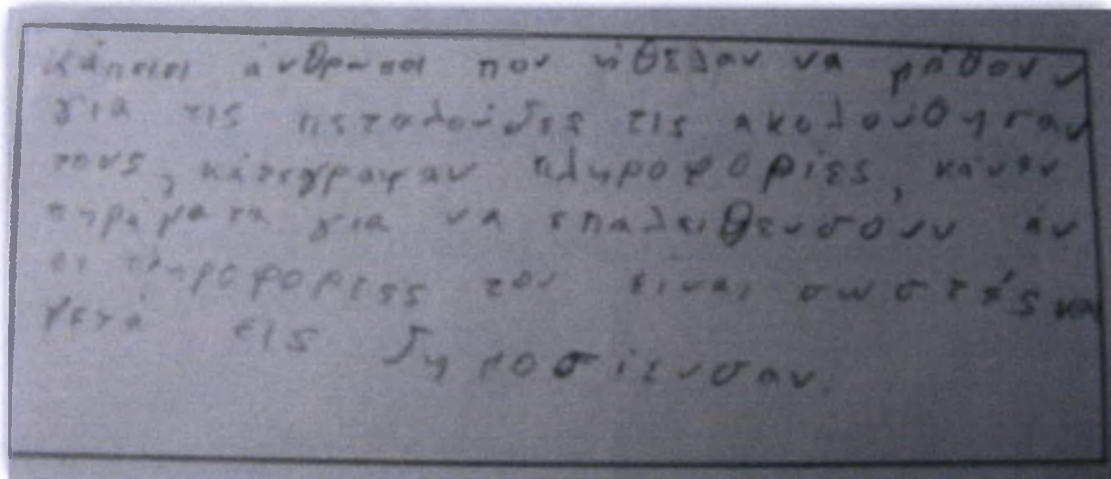 κάποιοι άνθρωποι που ήθελαν να μάθουν
για τις πεταλούδες τις ακολούθησαν
τους, κάτεγραψαν πληροφορίες, κάναν
πηράματα για να επαλειθευσούν άν
οι πληροφορίες του είναι σωστές και
μετά τις δημοσίευσαν.